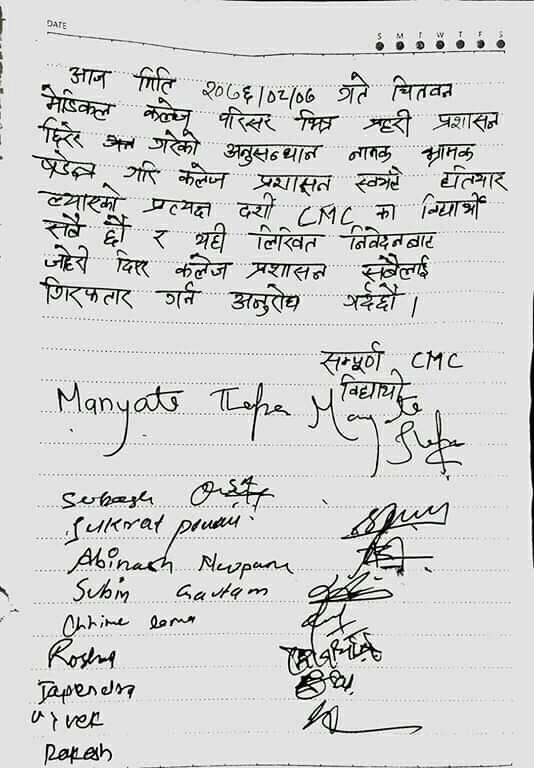 DATE
S M T W T F S
आज मिति २०७६/०२/०७ गते चितवन
मेडिकल कलेज परिसर भित्र प्रहरी प्रशासन
छिरेर गरेको अनुसन्धान नामक भ्रामक
षडेन्त्र गरि कलेज प्रशासन स्वयंले हतियार
ल्यारको प्रत्यक्ष दर्शी CMC का विद्यार्थी
सबै छौ र यही लिखित निवेदनबाट
जाहेरी दिएर कलेज प्रशासन सबैलाई
गिरफतार गर्न अनुरोध गर्दछौ।
सम्पूर्ण CMC
विद्यार्थी
Manyate Thapa
Subash
Abinash Neupane
Subin Gautam
Chhime lama
Roshan
Tapendra
Vivek
Rakesh